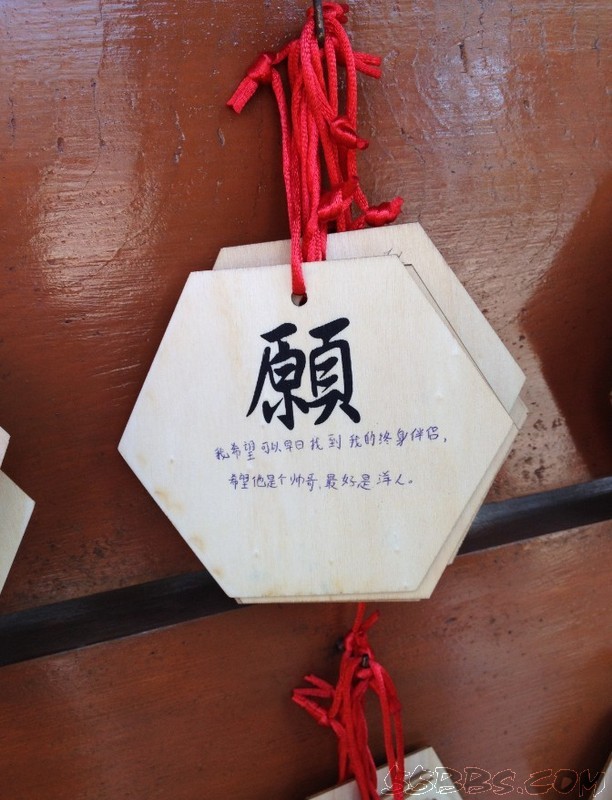 願
我希望可以早日找到我的终身伴侣，
希望他是个帅哥、最好是洋人。
SSBBS.COM